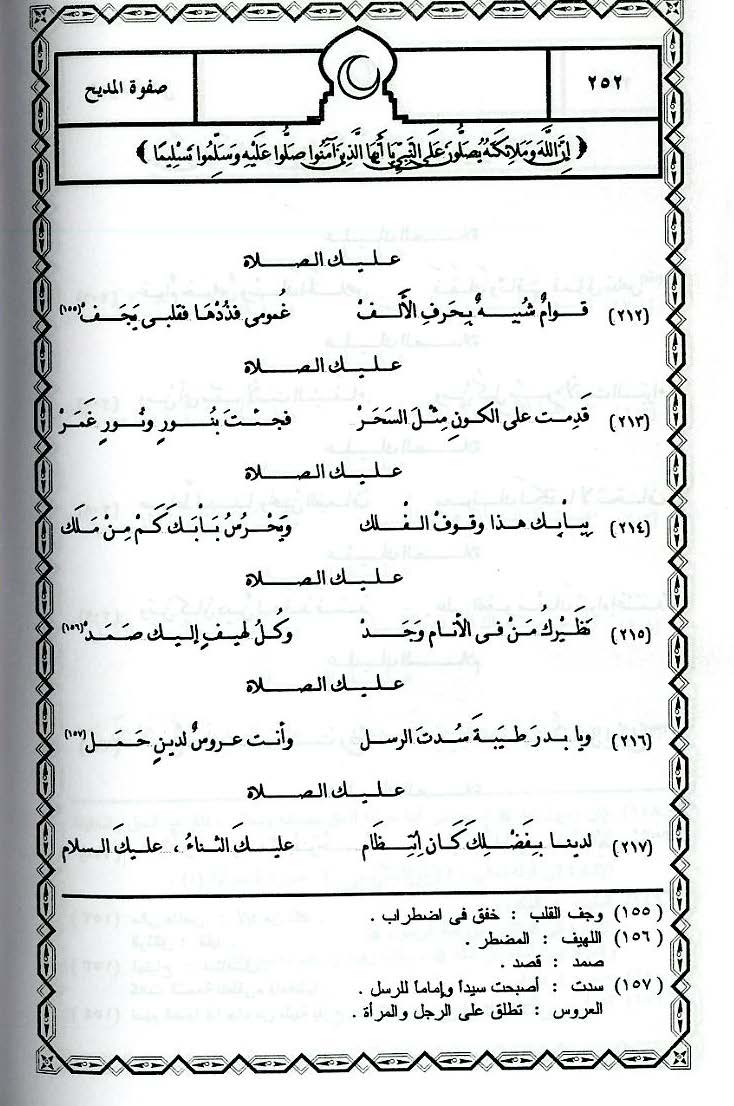 ٢٥٢
صفوة المديح
﴿ إِنَّ اللَّهَ وَمَلَائِكَتَهُ يُصَلُّونَ عَلَى النَّبِيِّ يَا أَيُّهَا الَّذِينَ آمَنُوا صَلُّوا عَلَيْهِ وَسَلِّمُوا تَسْلِيمًا ﴾
عـلـيـك الصـــلاة
(٢١٢) قـوامٌ شُبيـهٌ بِحَرفِ الأَلـفْ غُمومى فذُدْهَا فقلبـى يَجَـفْ (١٥٥)
عـلـيـك الصـــلاة
(٢١٣) قَدِمت على الكونِ مِثْلَ السَحَرْ فجئتَ بنُـورٍ ونُـورٍ غَمَرْ
عـلـيـك الصـــلاة
(٢١٤) بِبابِـك هذا وقوفُ الـفْـلك ويَحْرُسُ بَابَكَ كَمْ مِنْ مَلَك
عـلـيـك الصـــلاة
(٢١٥) نَظَيْرِكُ مَنْ فى الأنام وَجَـدْ وكُلُ لهيفٍ إليـك صَمَدْ (١٥٦)
عـلـيـك الصـــلاة
(٢١٦) ويا بـدرَ طَيبَةَ سُدتَ الرسل وأنت عروسٌ لدينٍ حَمَـل (١٥٧)
عـلـيـك الصـــلاة
(٢١٧) لدينـا بِفَضْلِكَ كَـان اِنتِظَام عليـكَ الثناءُ ، عليكَ السلام
(١٥٥) وجف القلب : خفق فى اضطراب .
(١٥٦) اللهيف : المضطر .
صمد : قصد .
(١٥٧) سدت : أصبحت سيداً وإماماً للرسل .
العروس : تطلق على الرجل والمرأة .